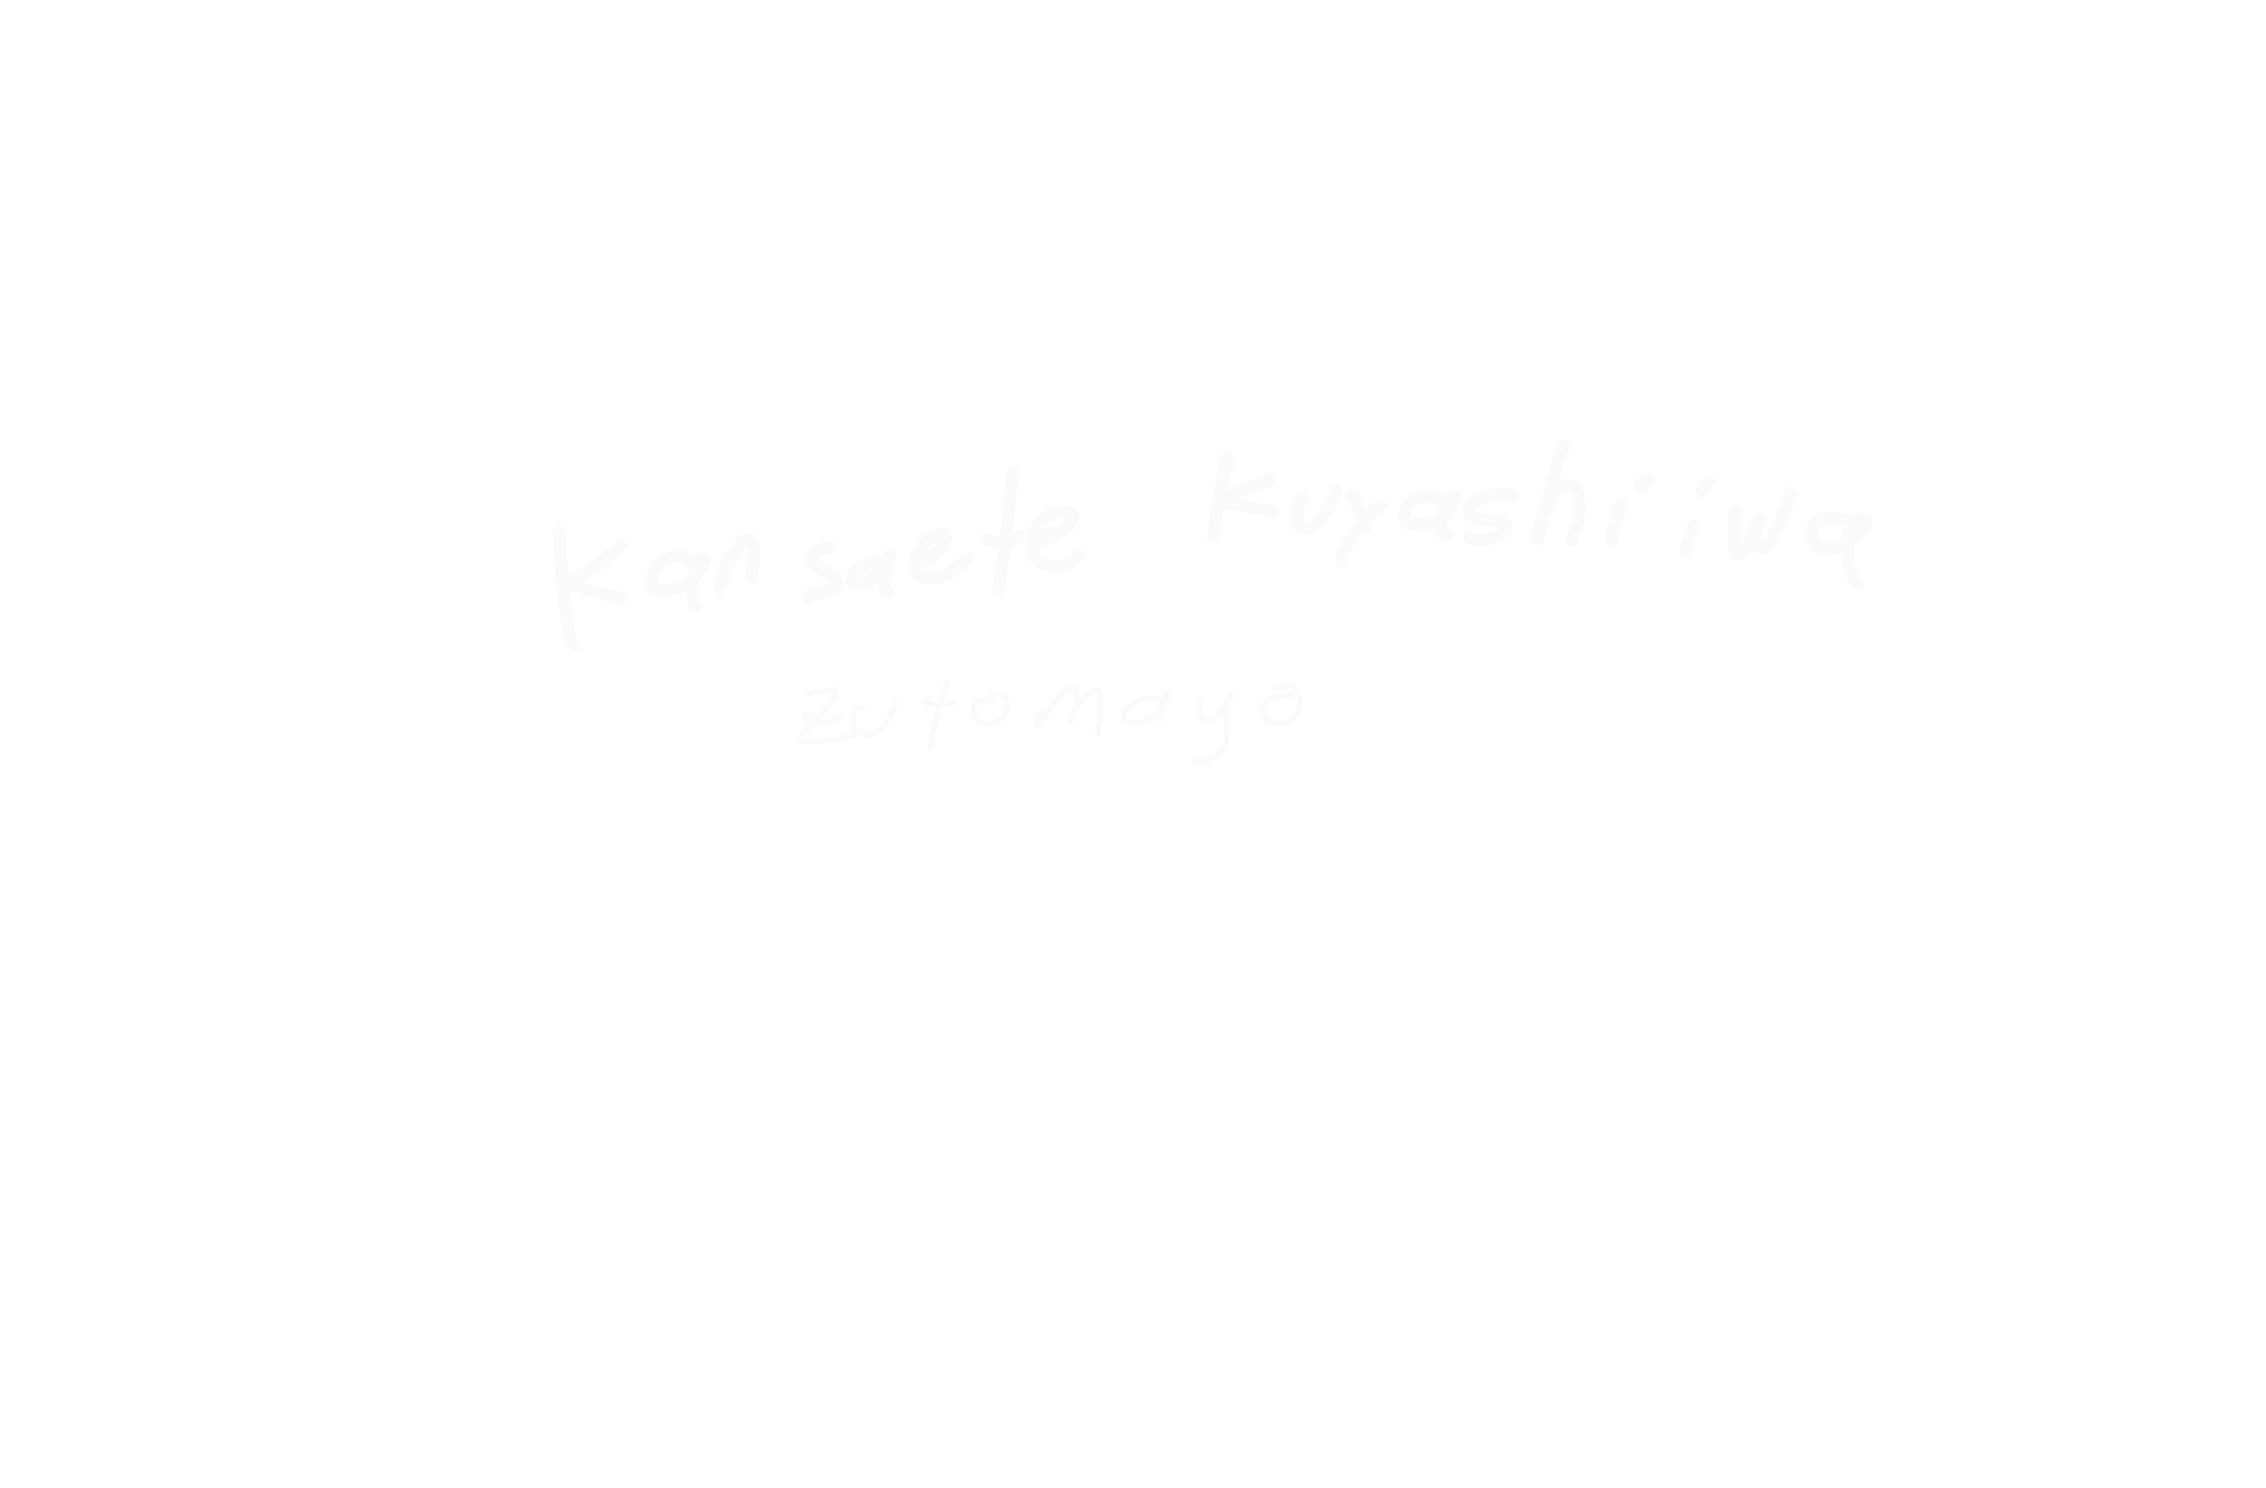 Kan saete Kuyashiiwa
zutomayo